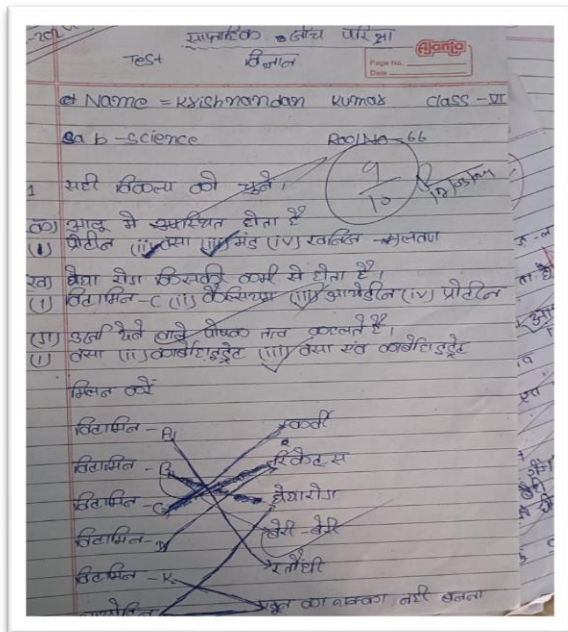 साप्ताहिक जाँच परिक्षा
Test विज्ञान
Ajanta
Page No.
Date
Name = Krishnandan Kumar Class - VI
Sub - Science Roll No - 66
9/10
1 सही विकल्प को चुने।
(क) आलू मे उपस्थित होता है
(i) प्रोटीन (ii) वसा (iii) मंड (iv) खनिज - लवण
(ख) घेघा रोग किसकी कमी से होता है।
(i) विटामिन - C (ii) कैल्सियम (iii) आयोडीन (iv) प्रोटीन
(ग) उर्जा देने वाले पोषक तत्व कहलाते है।
(i) वसा (ii) कार्बोहाइड्रेट (iii) वसा एंव कार्बोहाइड्रेट
मिलान करें
विटामिन - A स्कर्वी
विटामिन - B रिकेट्स
विटामिन - C घेघारोग
विटामिन - D बेरी - बेरी
विटामिन - K रतौंधी
आयोडिन खून का थक्का नही बनना